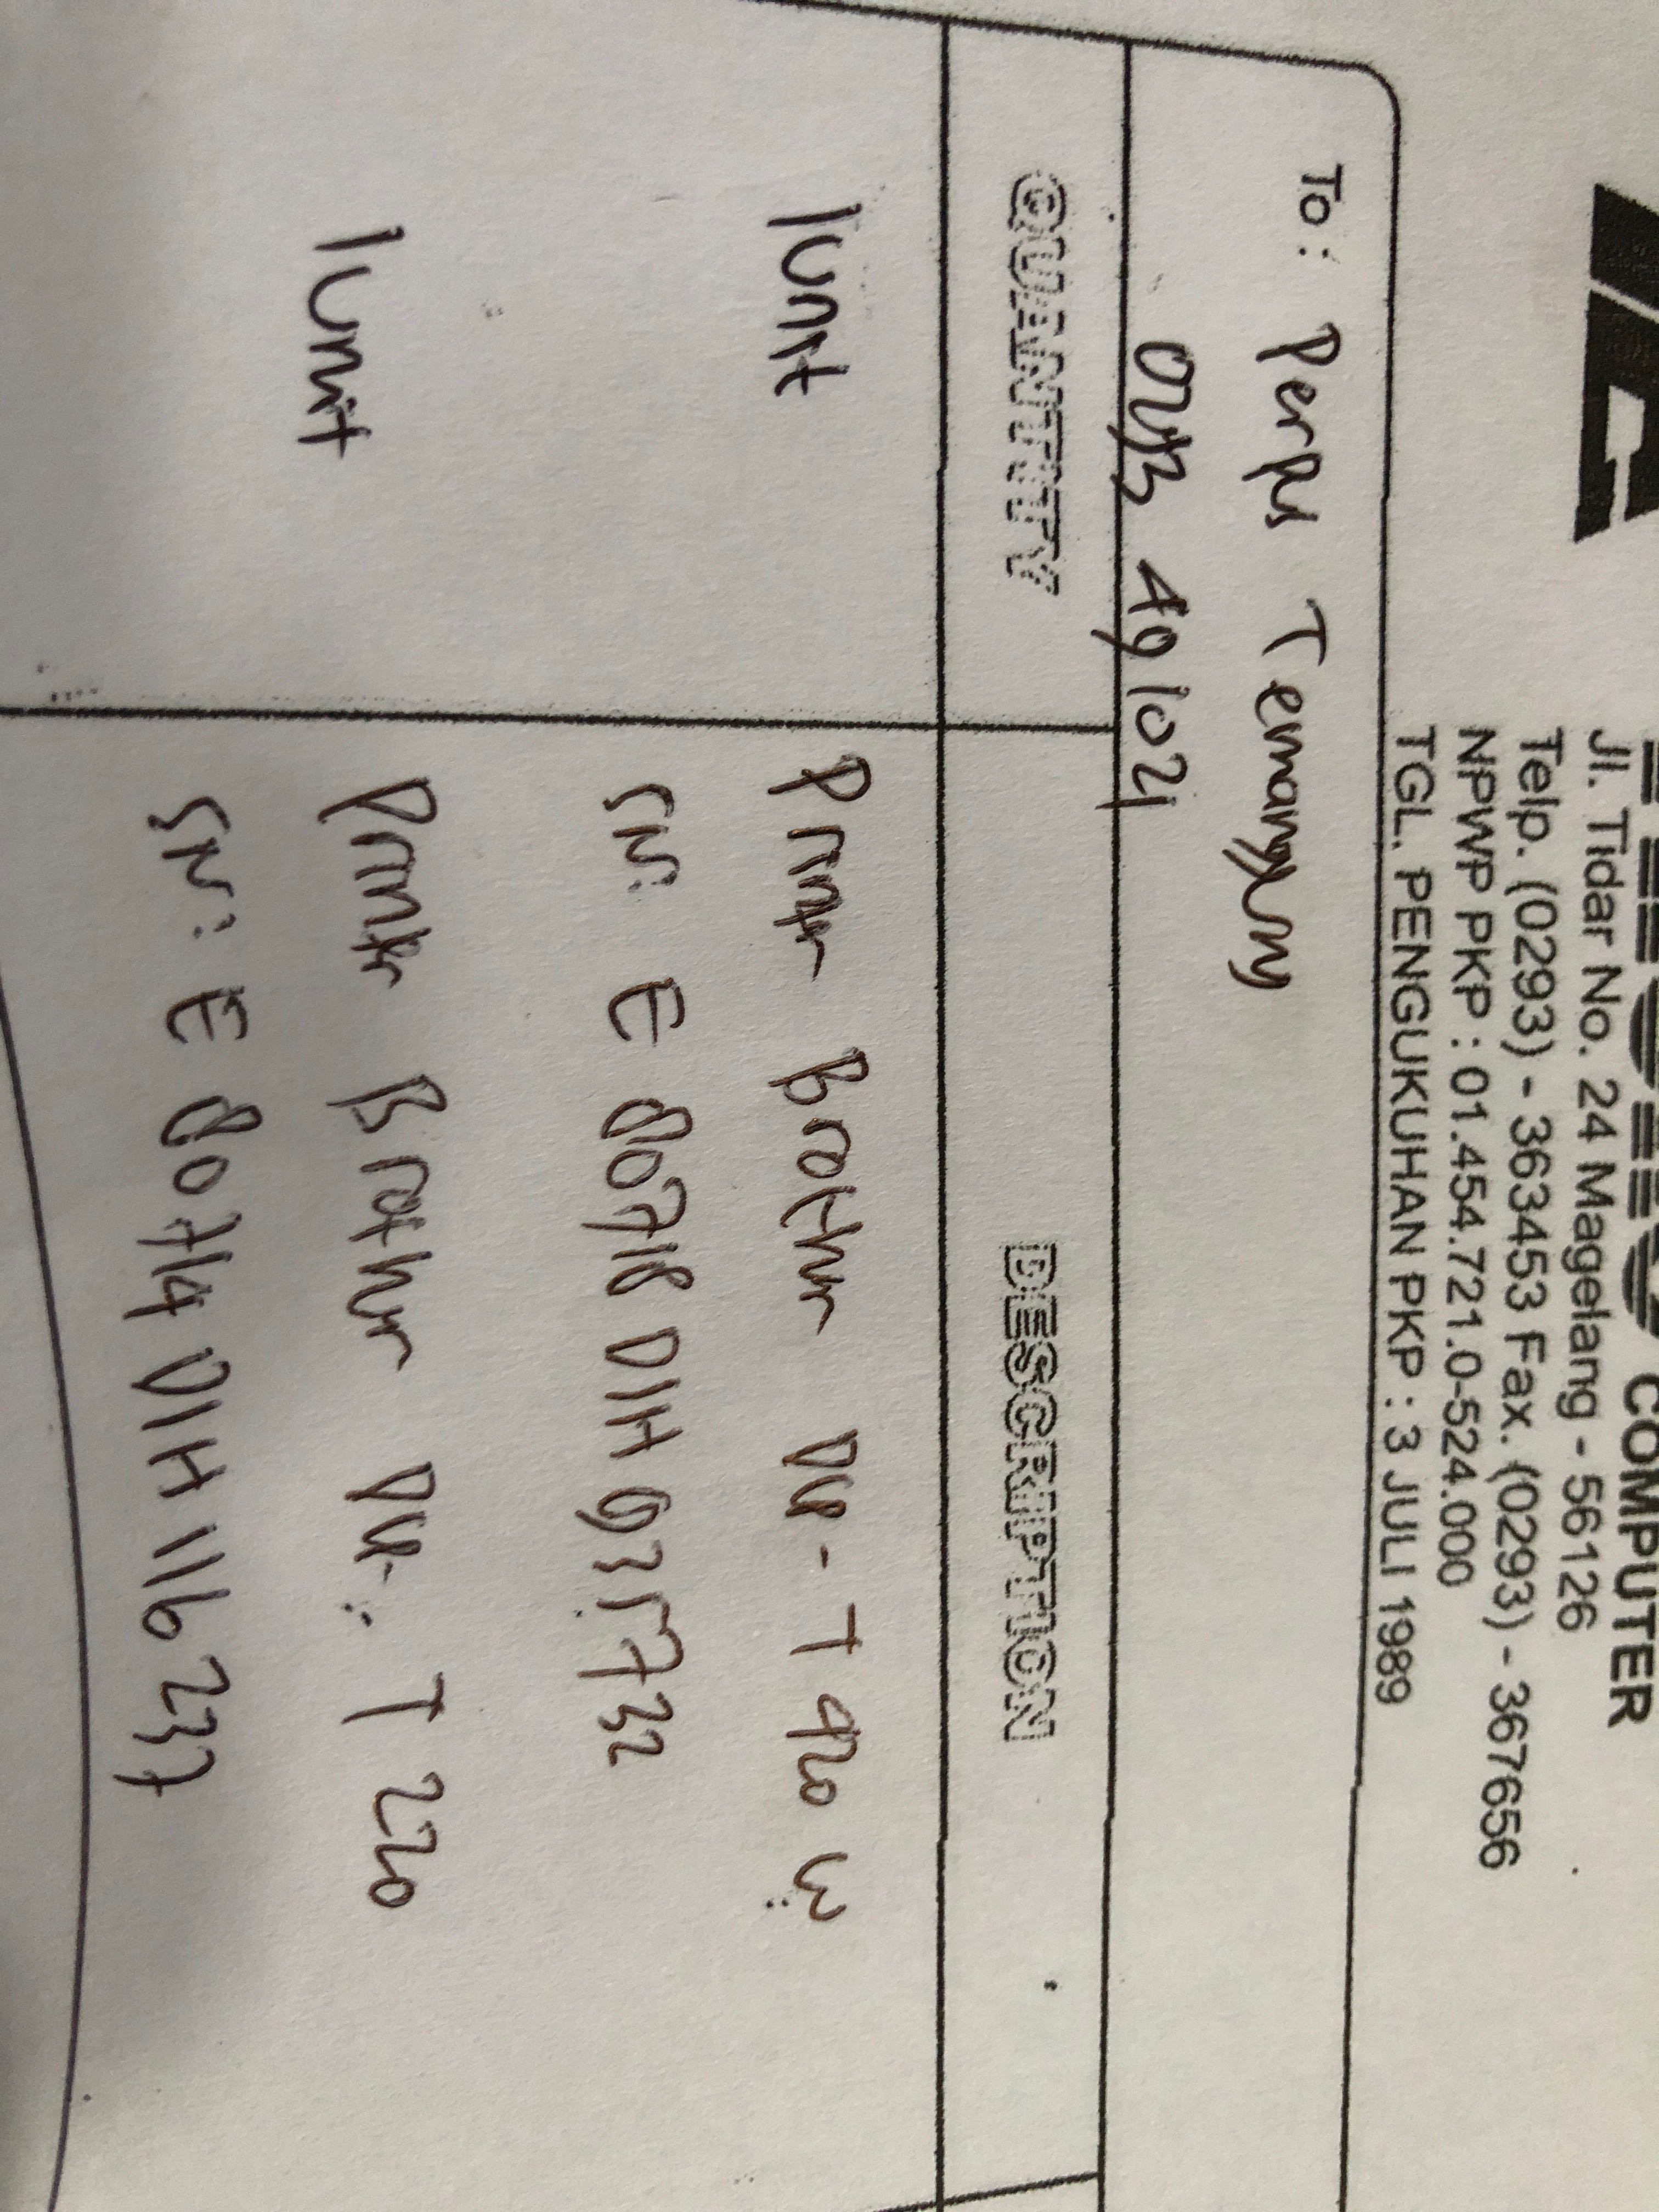 COMPUTER
Jl. Tidar No. 24 Magelang - 56126
Telp. (0293) - 363453 Fax. (0293) - 367656
NPWP PKP : 01.454.721.0-524.000
TGL. PENGUKUHAN PKP : 3 JULI 1989
To : Perpus Temanggung
0293 491024
QUANTITY DESCRIPTION
1 Unit Printer Brother DCP - T 420 W
SN: E 80718 D1H
1 Unit Printer Brother DCP - T 220
SN : E 80714 D1H 116237